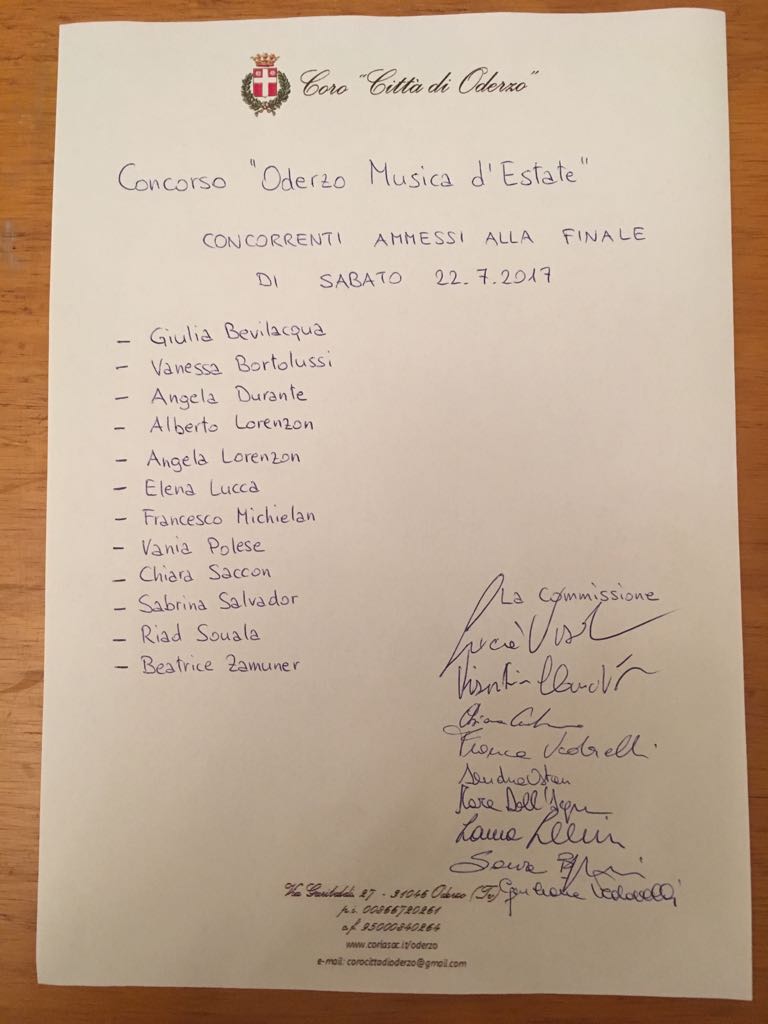 Coro "Città di Oderzo"
Concorso "Oderzo Musica d'Estate"
CONCORRENTI AMMESSI ALLA FINALE
DI SABATO 22.7.2017
- Giulia Bevilacqua
- Vanessa Bortolussi
- Angela Durante
- Alberto Lorenzon
- Angela Lorenzon
- Elena Lucca
- Francesco Michielan
- Vania Polese
- Chiara Saccon
- Sabrina Salvador
- Riad Souala
- Beatrice Zamuner
La Commissione
Franca
Mara Dall'
Laura
Via Garibaldi, 27 - 31046 Oderzo (Tv)
p.i. 00866720261
c.f. 95000840264
www.coriasac.it/oderzo
e-mail: corocittadioderzo@gmail.com